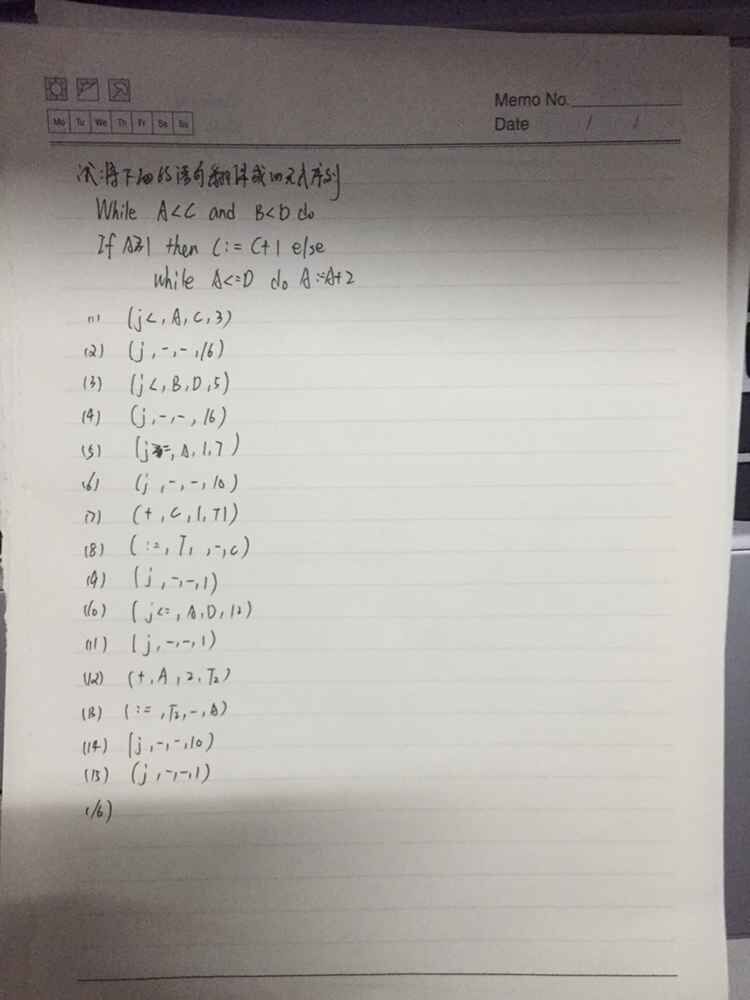 Memo No.
Mo Tu We Th Fr Sa Su
Date / /
试:将下面的语句翻译成四元式序列
While A<C and B<D do
If A≥1 then C:= C+1 else
while A<=D do A:=A+2
(1) (j<, A, C, 3)
(2) (j, -, -, 16)
(3) (j<, B, D, 5)
(4) (j, -, -, 16)
(5) (j>=, A, 1, 7)
(6) (j, -, -, 10)
(7) (+, C, 1, T1)
(8) (:=, T1, -, C)
(9) (j, -, -, 1)
(10) (j<=, A, D, 12)
(11) (j, -, -, 1)
(12) (+, A, 2, T2)
(13) (:=, T2, -, A)
(14) (j, -, -, 10)
(15) (j, -, -, 1)
(16)